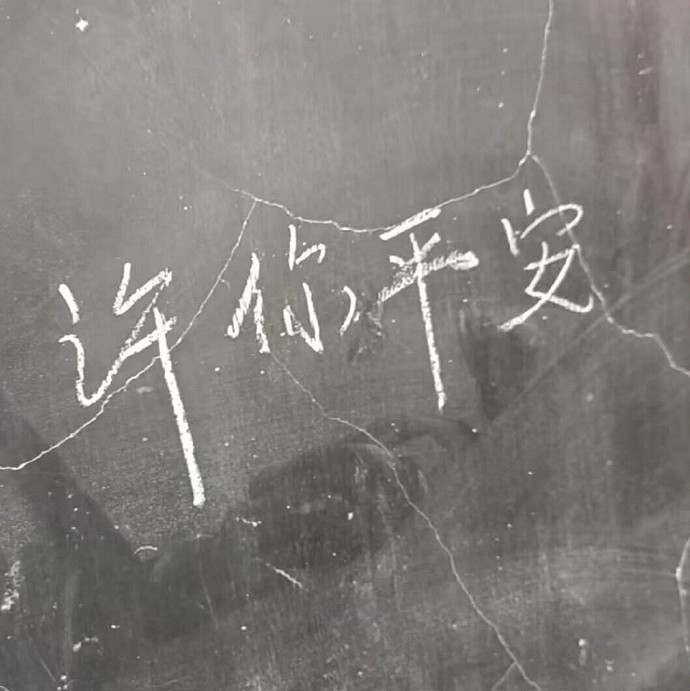 许你平安